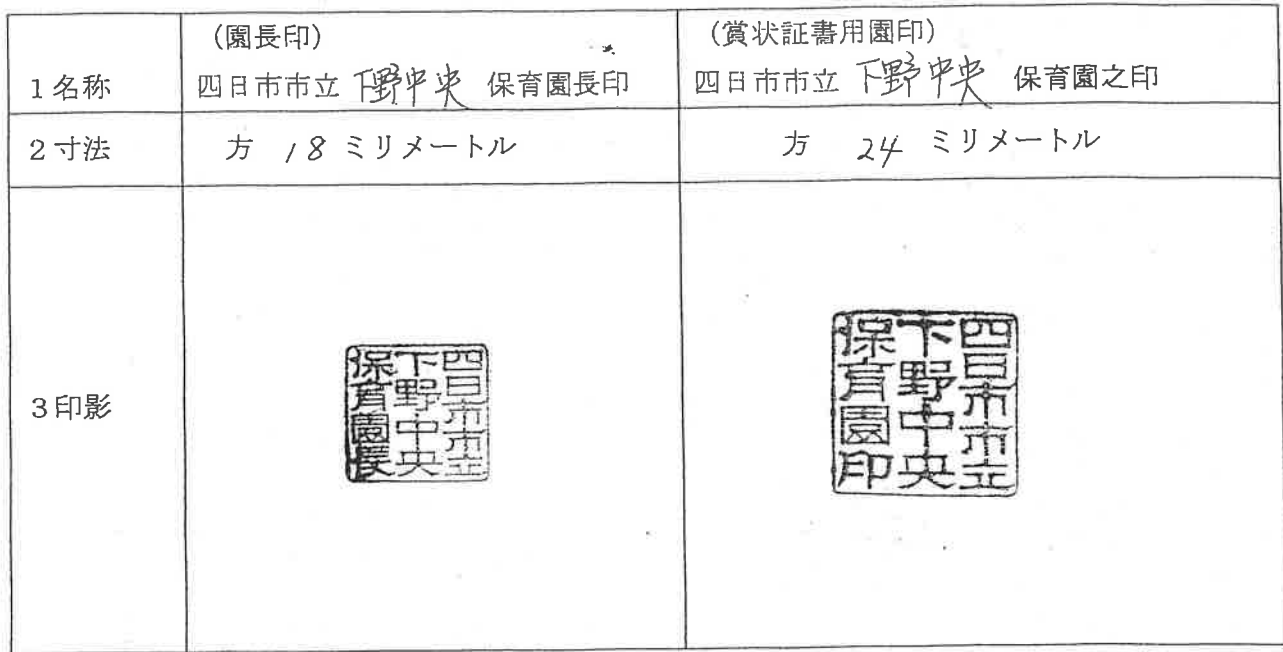 (園長印)
(賞状証書用園印)
1名称
四日市市立 下野中央 保育園長印
四日市市立 下野中央 保育園之印
2寸法
方 18 ミリメートル
方 24 ミリメートル
3印影
四日市市立
下野中央
保育園長
四日市市立
下野中央
保育園印